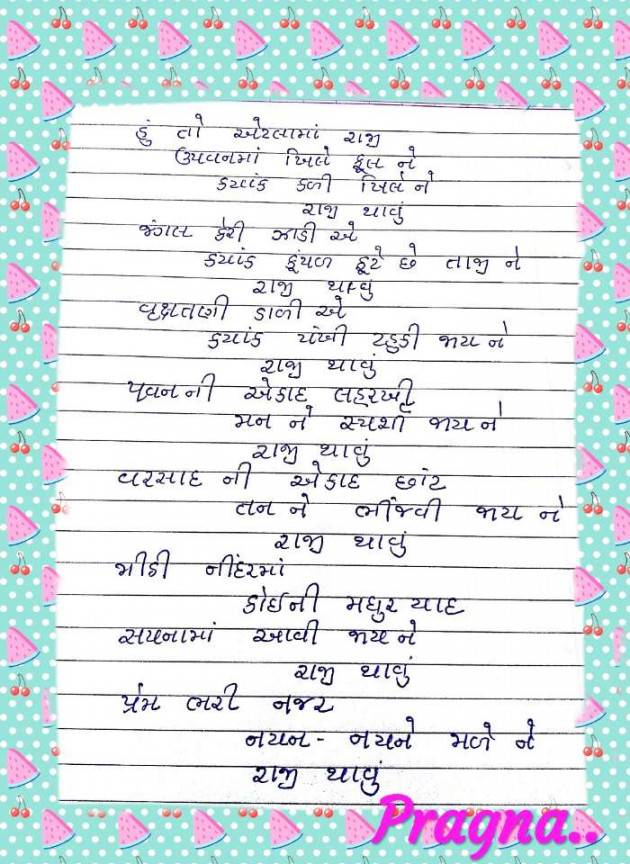 હું તો એટલામાં રાજી
ઉપવનમાં ખિલે ફૂલ ને
કયાંક કળી ખિલે ને
રાજી થાવું
જંગલ કેરી ઝાડી એ
કયાંક કૂંપળ ફૂટે છે તાજી ને
રાજી થાવું
વૃક્ષતાણી ડાળી એ
કયાંક પંખી ટહુકી જાય ને
રાજી થાવું
પવન ની એકાદ લહરખી
મન ને સ્પર્શી જાય ને
રાજી થાવું
વરસાદ ની એકાદ છાંટ
તન ને ભીંજવી જાય ને
રાજી થાવું
મીઠી નીંદરમાં
કોઈની મધુર યાદ
સપનામાં આવી જાય ને
રાજી થાવું
પ્રેમ ભરી નજર
નયન - નયને મળે ને
રાજી થાવું
Pragna..